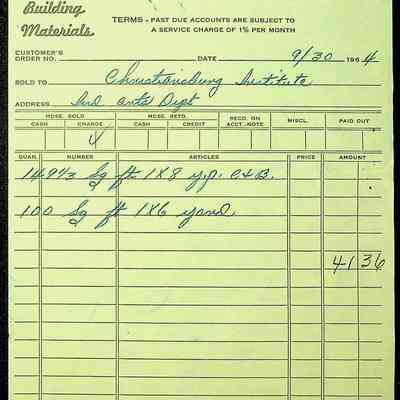 Building
Materials
TERMS - PAST DUE ACCOUNTS ARE SUBJECT TO
A SERVICE CHARGE OF 1% PER MONTH
CUSTOMER'S
ORDER NO.
DATE 9/30 1964
SOLD TO Christiansburg Institute
ADDRESS Ind arts Dept
MDSE. SOLD MDSE. RETD. RECD. ON ACCT.-NOTE MISCL. PAID OUT
CASH CHARGE CASH CREDIT
QUAN. NUMBER ARTICLES PRICE AMOUNT
Sq ft 1X8 y.p.
100 Sq ft 1X6
41 36